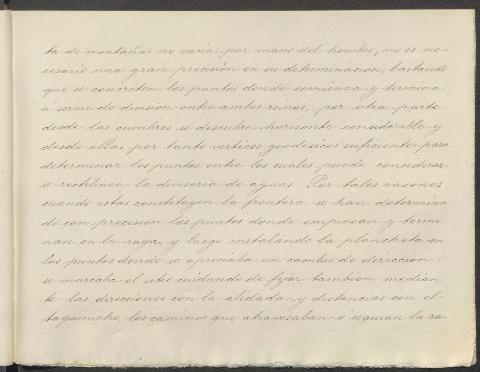 ta de montañas no varia por mano del hombre, no es ne-
cesario una gran precisión en su determinacion, bastando
que se concreten los puntos donde comienza y termina
á servir de división entre ambos reinos, por otra parte
desde las cumbres se descubre horizonte considerable y
desde ellas por tanto vertices geodesicos suficientes para
determinar los puntos entre los cuales puede considerar
se rectilinea la divisoria de aguas. Por tales razones
cuando estas constituyen la frontera se han determina
do con precision los puntos donde empiezan y termi
nan en la raya, y luego instalando la plancheta en
los puntos donde se apreciaba un cambio de dirección
se marcaba el sitio cuidando de fijar tambien, median
te las direcciones con la alidada y distancias con el
taquimetro, los caminos que atravesaban ó seguian la ra-